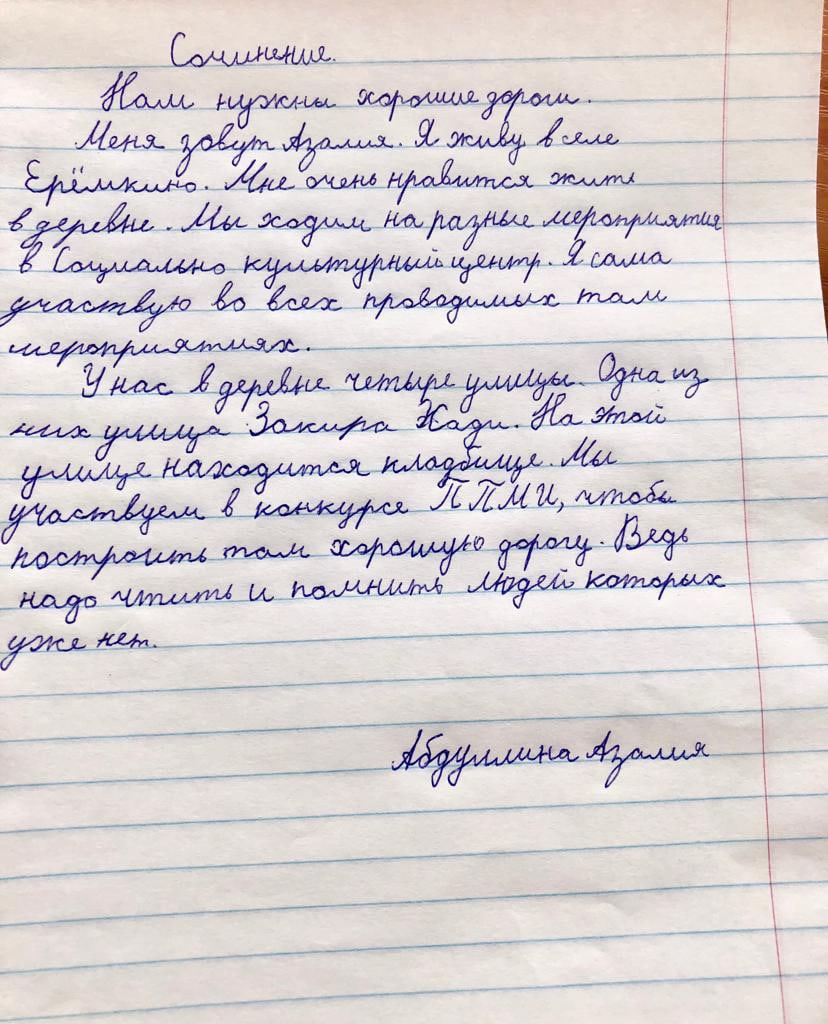 Сочинение.
Нам нужны хорошие дороги.
Меня зовут Азалия. Я живу в селе
Ерёмкино. Мне очень нравится жить
в деревне. Мы ходим на разные мероприятия
в Социально культурный центр. Я сама
участвую во всех проводимых там
мероприятиях.
У нас в деревне четыре улицы. Одна из
них улица Закира Хади. На этой
улице находится кладбище. Мы
участвуем в конкурсе ППМИ, чтобы
построить там хорошую дорогу. Ведь
надо чтить и помнить людей которых
уже нет.
Абдуллина Азалия